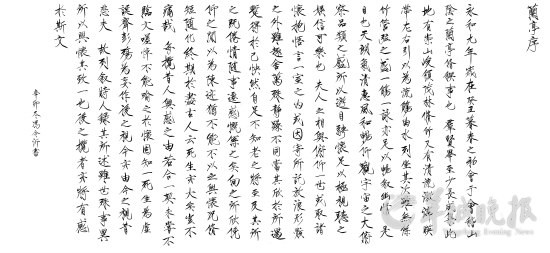 蘭亭序
永和九年歲在癸丑暮春之初會于會稽山
陰之蘭亭脩稧事也羣賢畢至少長咸集此
地有崇山峻領茂林脩竹又有清流激湍映
帶左右引以為流觴曲水列坐其次雖無絲
竹管弦之盛一觴一詠亦足以暢敘幽情是
日也天朗氣清惠風和暢仰觀宇宙之大俯
察品類之盛所以遊目騁懷足以極視聽之
娛信可樂也夫人之相與俯仰一世或取諸
懷抱悟言一室之內或因寄所託放浪形骸
之外雖趣舍萬殊靜躁不同當其欣於所遇
暫得於己快然自足不知老之將至及其所
之既倦情隨事遷感慨係之矣向之所欣俛
仰之間以為陳迹猶不能不以之興懷況脩
短隨化終期於盡古人云死生亦大矣豈不
痛哉每攬昔人興感之由若合一契未嘗不
臨文嗟悼不能喻之於懷固知一死生為虛
誕齊彭殤為妄作後之視今亦由今之視昔
悲夫故列敘時人錄其所述雖世殊事異
所以興懷其致一也後之攬者亦將有感
於斯文
辛卯冬馮
羊城晚报